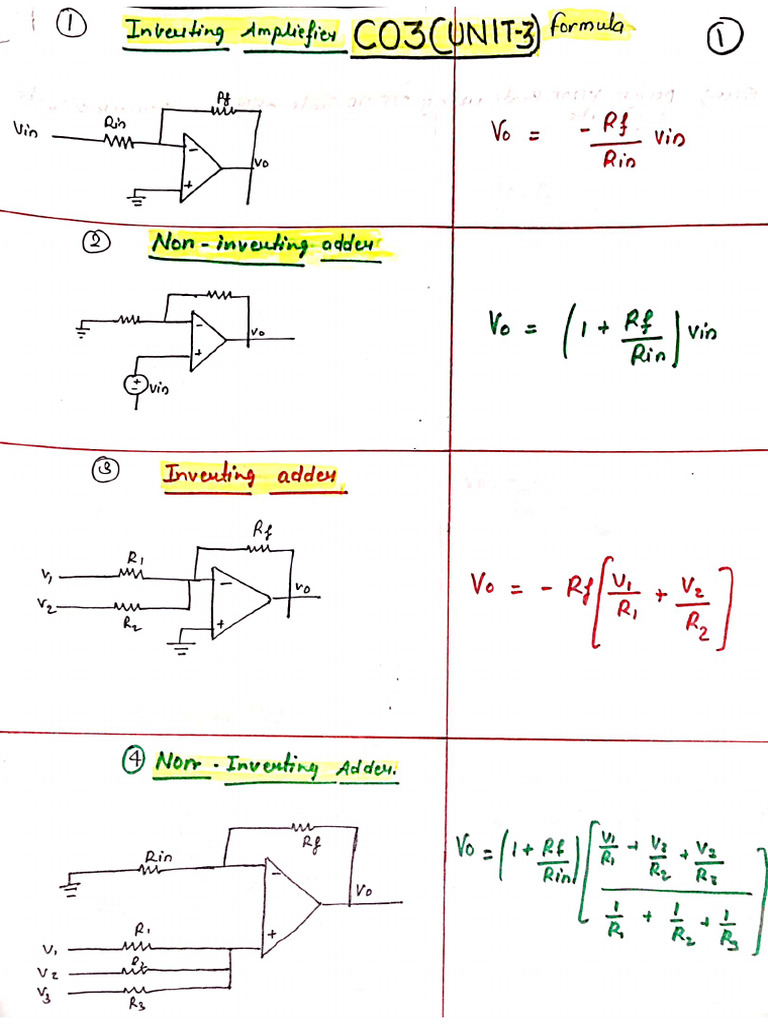 ① Inverting Ampliefier CO3(UNIT-3) formula ①
Rf
Vin Rin
- +
Vo
Vo = - Rf/Rin Vin
② Non-inverting adder
- +
Vo
Vin
Vo = (1 + Rf/Rin) Vin
③ Inverting adder
Rf
R1
V1
V2
R2
- +
Vo
Vo = - Rf [V1/R1 + V2/R2]
④ Non-Inverting Adder.
Rf
Rin
- +
Vo
V1 R1
V2 R2
V3 R3
Vo = (1 + Rf/Rin) [(V1/R1 + V3/R2 + V2/R3) / (1/R1 + 1/R2 + 1/R3)]